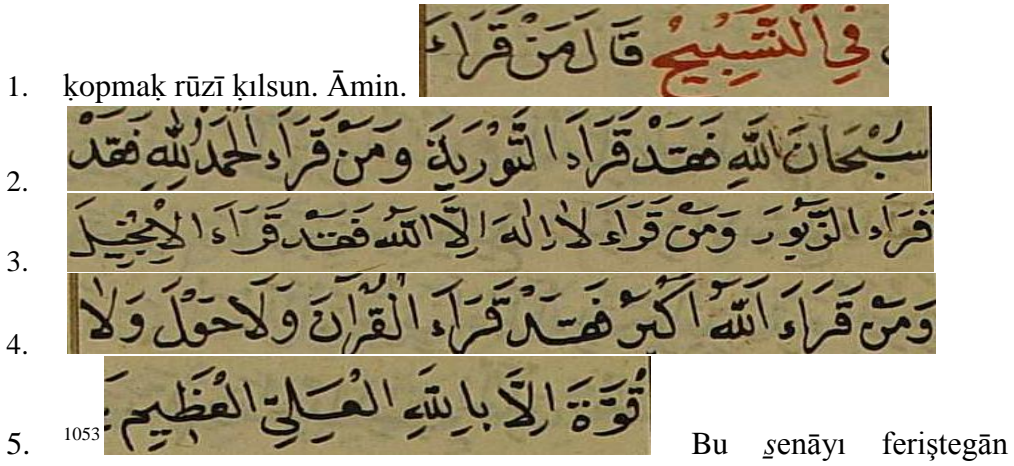 1. ḳopmaḳ rūzī ḳılsun. Āmin. فِي التَّسْبِيحُ قَالَ مَنْ قَرَاءَ
2. سُبْحَانَ اللّٰهِ فَقَدْ قَرَاءَ التَّوْرِيةَ وَمَنْ قَرَاءَ الْحَمْدُ لِلّٰهِ فَقَدْ
3. قَرَاءَ الزَّبُورَ وَمَنْ قَرَاءَ لَا اِلٰهَ اِلَّا اللّٰهُ فَقَدْ قَرَاءَ الْاِنْجِيلَ
4. وَمَنْ قَرَاءَ اللّٰهُ اَكْبَرُ فَقَدْ قَرَاءَ الْقُرْآنَ وَلَا حَوْلَ وَلَا
5. 1053 قُوَّةَ اِلَّا بِاللّٰهِ الْعَلِيِّ الْعَظِيمِ Bu s̱enāyı feriştegān